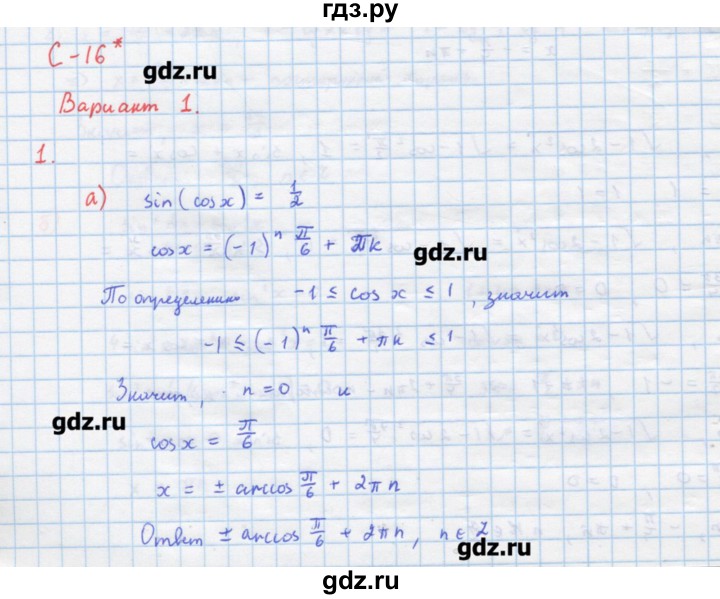 гдз.ру
С-16*
gdz.ru
Вариант 1.
1.
а) sin(cosx) = 1/2
cosx = (-1)^n π/6 + πk
gdz.ru
По определению -1 ≤ cos x ≤ 1, значит
-1 ≤ (-1)^n π/6 + πn ≤ 1
Значит, n = 0 и
gdz.ru
cosx = π/6
x = ± arccos π/6 + 2πn
Ответ ± arccos π/6 + 2πn, n ∈ Z
gdz.ru
gdz.ru